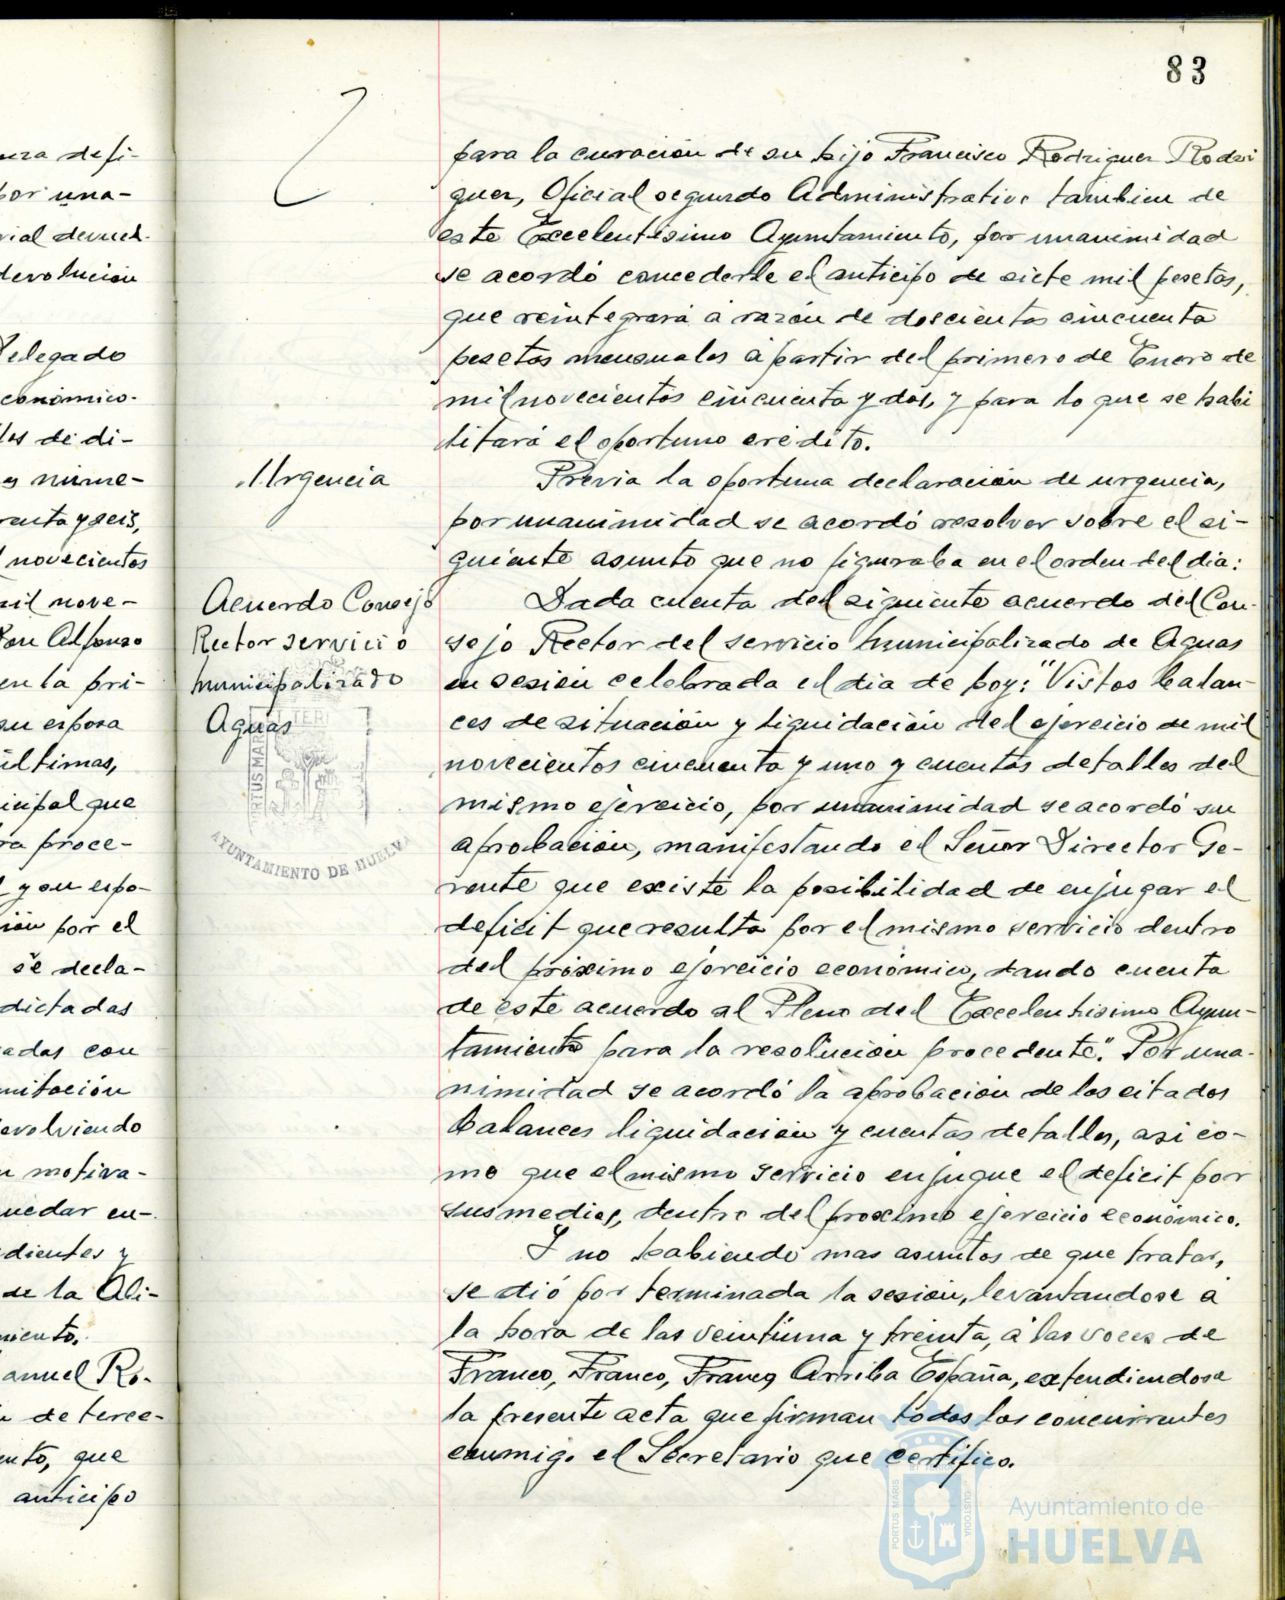 83
uza defi-
por una-
rial devuel-
devolución
Delegado
conómico-
les de di-
es núme-
renta y seis,
novecientos
mil nove-
Don Alfonso
en la pri-
su esposa
últimas,
icipal que
ra proce-
y su espo-
ión por el
se decla-
dictadas
adas con
mitación
evolviendo
n motiva-
uedar en-
dientes y
de la Ali-
miento.
anuel Ro-
de terce-
ento, que
anticipo
Urgencia
Acuerdo Consejo
Rector servicio
municipalizado
Aguas
PORTUS MARIS
AYUNTAMIENTO DE HUELVA
para la curación de su hijo Francisco Rodriguez Rodri
guez, Oficial segundo Administrativo tambien de
este Excelentísimo Ayuntamiento, por unanimidad
se acordó concederle el anticipo de siete mil pesetas,
que reintegrará a razón de doscientas cincuenta
pesetas mensuales á partir del primero de Enero de
mil novecientos cincuenta y dos, y para lo que se habi
litará el oportuno crédito.
Previa la oportuna declaración de urgencia,
por unanimidad se acordó resolver sobre el si-
guiente asunto que no figuraba en el orden del dia:
Dada cuenta del siguiente acuerdo del Con-
sejo Rector del servicio municipalizado de Aguas
en sesión celebrada el dia de hoy: "Vistos balan-
ces de situación y liquidación del ejercicio de mil
novecientos cincuenta y uno y cuentas detalles del
mismo ejercicio, por unanimidad se acordó su
aprobación, manifestando el Señor Director Ge-
rente que existe la posibilidad de enjugar el
deficit que resulta por el mismo servicio dentro
del próximo ejercicio económico, dando cuenta
de este acuerdo al Pleno del Excelentisimo Ayun-
tamiento para la resolución procedente". Por una-
nimidad se acordó la aprobación de los citados
balances liquidación y cuentas detalles, asi co-
mo que el mismo servicio enjugue el deficit por
sus medios, dentro del proximo ejercicio económico.
Y no habiendo mas asuntos de que tratar,
se dió por terminada la sesión, levantandose á
la hora de las veintiuna y treinta, á las voces de
Franco, Franco, Franco, Arriba España, extendiendose
la presente acta que firman todos los concurrentes
conmigo el Secretario que certifico.
PORTUS MARIS
CUSTODIA
Ayuntamiento de
HUELVA